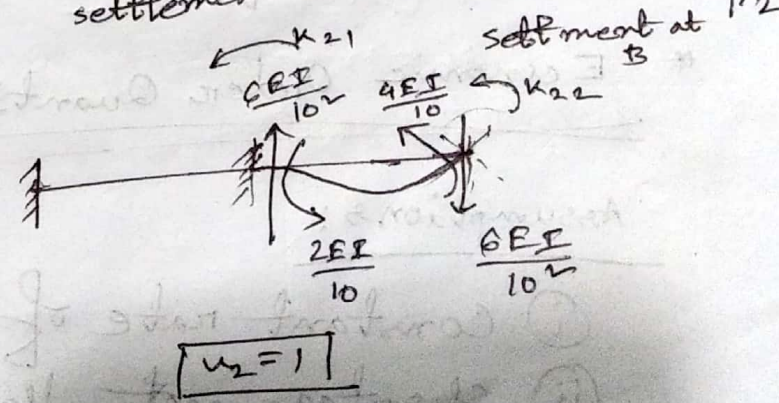 settlemen
settment at
B
K21
6EI/10²
4EI/10
K22
2EI/10
6EI/10²
u2 = 1